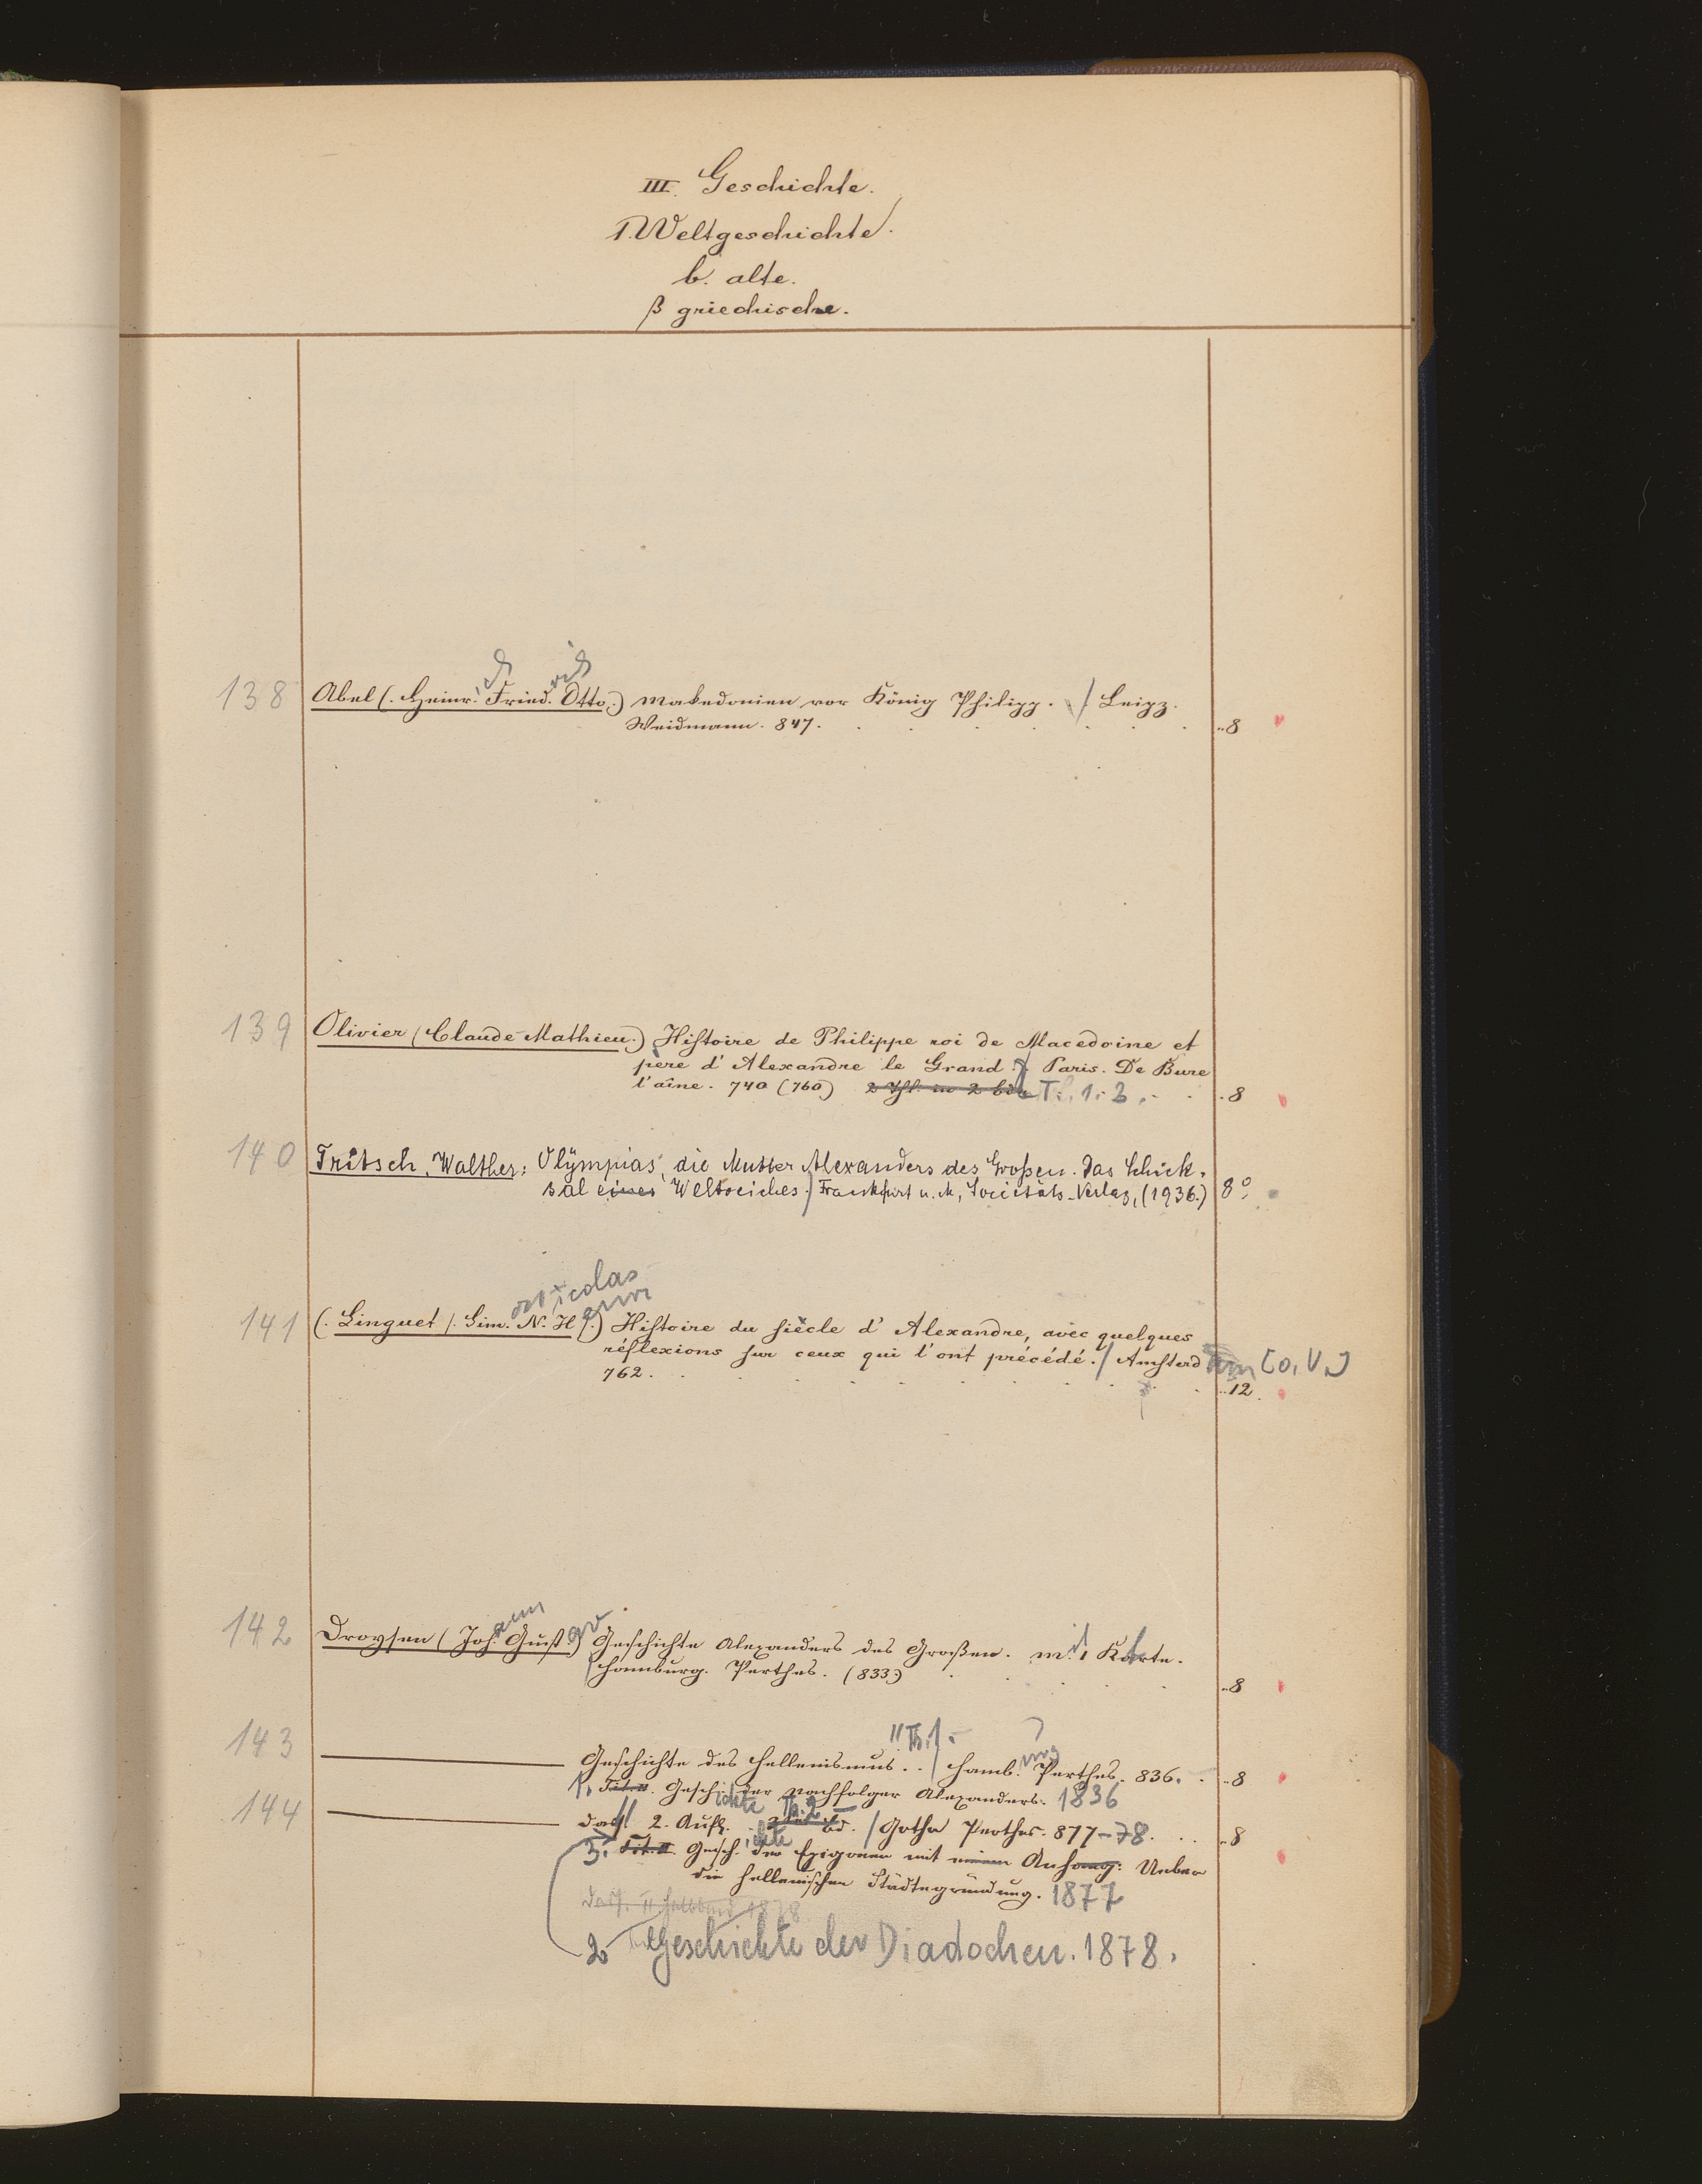 III. Geschichte.
1. Weltgeschichte.
b. alte.
β griechische.
138 Abel (. Heinr. Fried. Otto.) Makedonien vor König Philipp. / Leipz.
Weidmann. 847. ..8
139 Olivier (Claude-Mathieu.) Histoire de Philippe roi de Macedoine et
père d'Alexandre le Grand. / Paris. De Bure
l'aîne. 740 (760) Th. 1. 2. . 8
140 Fritsch, Walther: Olÿmpias, die Mutter Alexanders des Großen. Das Schick-
sal eines Weltreiches. / Frankfurt a. M., Societäts-Verlag, (1936.) 8°
icolas
141 (. Linguet /. Sim. N. H /.) Histoire du siècle d'Alexandre, avec quelques
réflexions sur ceux qui l'ont précédé. / Amsterdam [o. V.]
762. ..12.
142 Droysen (Johann Gustav) Geschichte Alexanders des Großen. m. 1 Karte.
Hamburg. Perthes. (833.) ..8
143 Th. 1.-
——— Geschichte des Hellenismus. . / Hamburg Perthes. 836. . ..8
1. Tit. Geschichte der Nachfolger Alexanders. 1836
144 ——— dass. 2. Aufl. Th. 2 Bd. / Gotha Perthes. 877-78. . ..8
3. Tit. Geschichte der Epigonen mit einem Anhang: Ueber
die hellenischen Städtegründung. 1877
dass. II Halbband 1878
2 Geschichte der Diadochen. 1878.